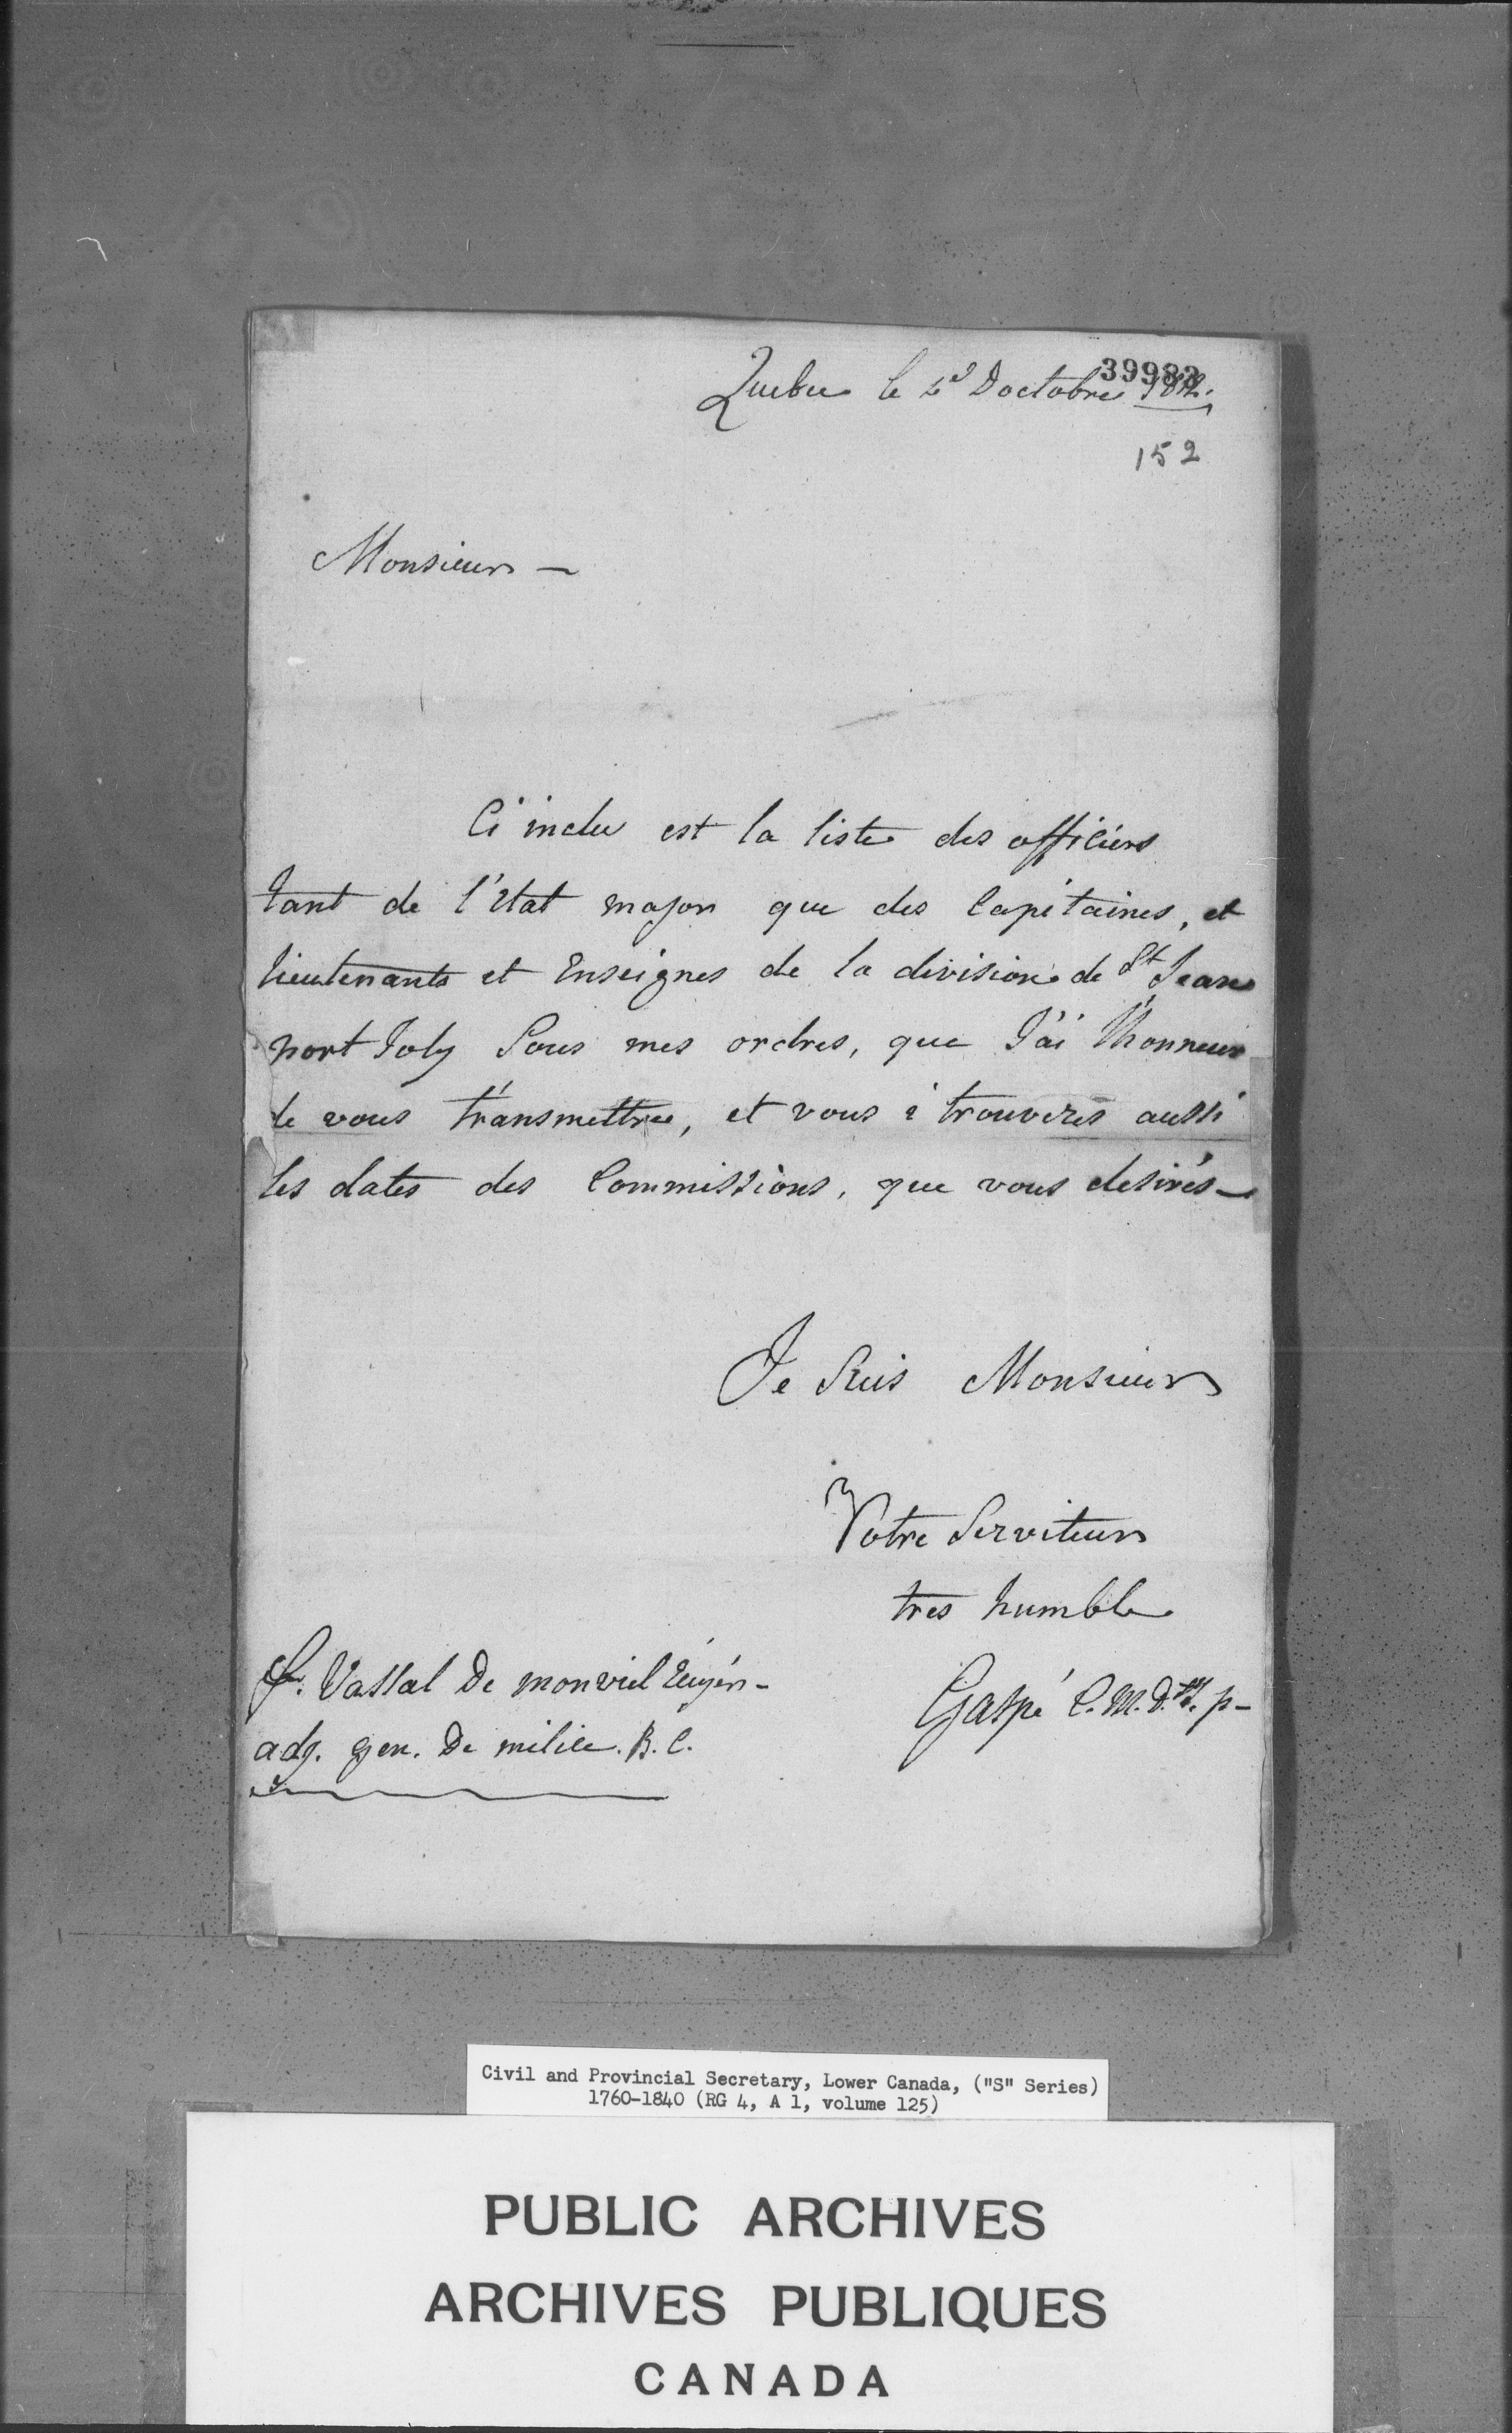 39982
Quebec le 2d Doctobre 1812.
152
Monsieur —
Ci inclu est la liste des officiers
tant de l'Etat major que des Capitaines, et
lieutenants et Enseignes de la division de St Jean
port Joly Sous mes ordres, que J'ai l'honneur
de vous transmettre, et vous i trouverés aussi
les dates des Commissions, que vous desirés —
Je Suis Monsieur
Votre Serviteur
tres humble
Gaspé C. M. D. p-
f. Vassal De monviel
adj. gen. De milice. B. C.
Civil and Provincial Secretary, Lower Canada, ("S" Series)
1760-1840 (RG 4, A 1, volume 125)
PUBLIC ARCHIVES
ARCHIVES PUBLIQUES
CANADA